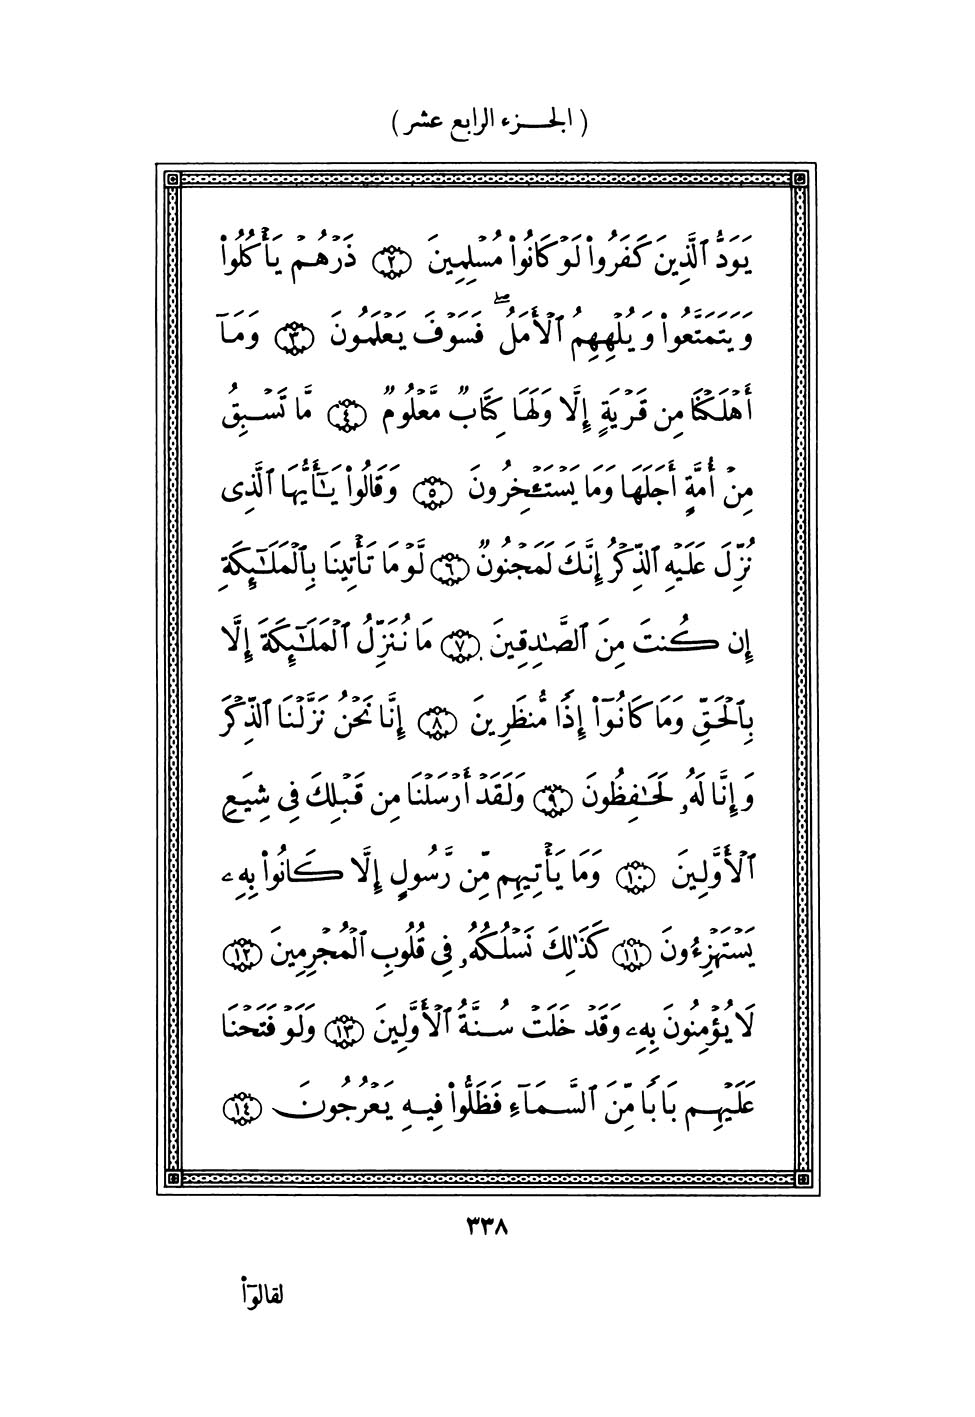 ( الجزء الرابع عشر )
يَوَدُّ ٱلَّذِينَ كَفَرُوا۟ لَوْ كَانُوا۟ مُسْلِمِينَ ۝٢ ذَرْهُمْ يَأْكُلُوا۟
وَيَتَمَتَّعُوا۟ وَيُلْهِهِمُ ٱلْأَمَلُ ۖ فَسَوْفَ يَعْلَمُونَ ۝٣ وَمَآ
أَهْلَكْنَا مِن قَرْيَةٍ إِلَّا وَلَهَا كِتَابٌ مَّعْلُومٌ ۝٤ مَّا تَسْبِقُ
مِنْ أُمَّةٍ أَجَلَهَا وَمَا يَسْتَـْٔخِرُونَ ۝٥ وَقَالُوا۟ يَـٰٓأَيُّهَا ٱلَّذِى
نُزِّلَ عَلَيْهِ ٱلذِّكْرُ إِنَّكَ لَمَجْنُونٌ ۝٦ لَّوْ مَا تَأْتِينَا بِٱلْمَلَـٰٓئِكَةِ
إِن كُنتَ مِنَ ٱلصَّـٰدِقِينَ ۝٧ مَا نُنَزِّلُ ٱلْمَلَـٰٓئِكَةَ إِلَّا
بِٱلْحَقِّ وَمَا كَانُوٓا۟ إِذًا مُّنظَرِينَ ۝٨ إِنَّا نَحْنُ نَزَّلْنَا ٱلذِّكْرَ
وَإِنَّا لَهُۥ لَحَـٰفِظُونَ ۝٩ وَلَقَدْ أَرْسَلْنَا مِن قَبْلِكَ فِى شِيَعِ
ٱلْأَوَّلِينَ ۝١٠ وَمَا يَأْتِيهِم مِّن رَّسُولٍ إِلَّا كَانُوا۟ بِهِۦ
يَسْتَهْزِءُونَ ۝١١ كَذَٰلِكَ نَسْلُكُهُۥ فِى قُلُوبِ ٱلْمُجْرِمِينَ ۝١٢
لَا يُؤْمِنُونَ بِهِۦ وَقَدْ خَلَتْ سُنَّةُ ٱلْأَوَّلِينَ ۝١٣ وَلَوْ فَتَحْنَا
عَلَيْهِم بَابًا مِّنَ ٱلسَّمَآءِ فَظَلُّوا۟ فِيهِ يَعْرُجُونَ ۝١٤
٣٣٨
لقالوٓا۟